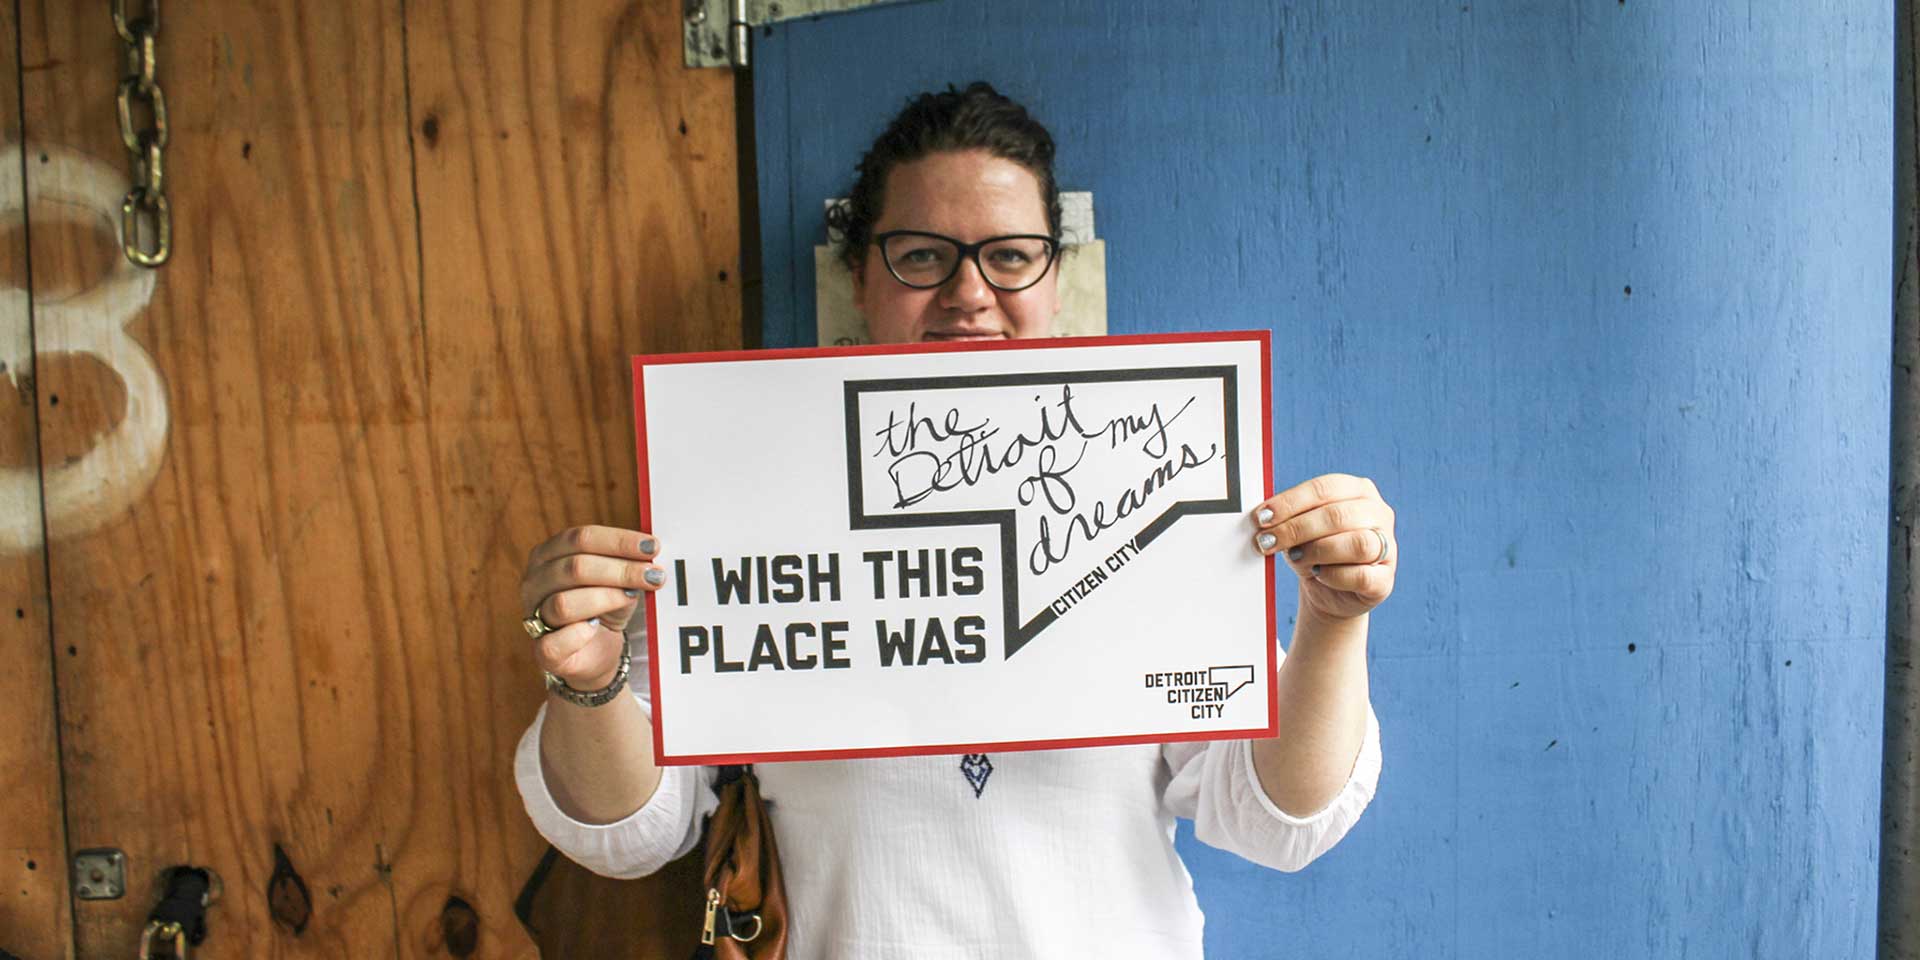 8
the
Detroit my
of
dreams.
CITIZEN CITY
I WISH THIS
PLACE WAS
DETROIT
CITIZEN
CITY